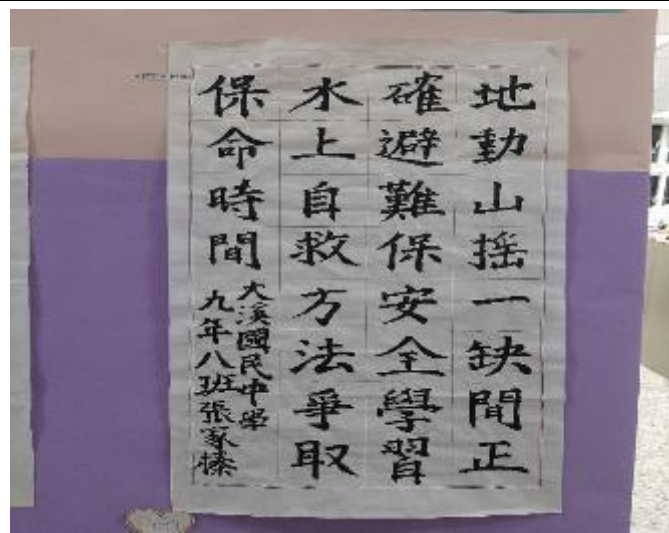 地動山搖一缺間正
確避難保安全學習
水上自救方法爭取
保命時間
大溪國民中學
九年八班張家榛